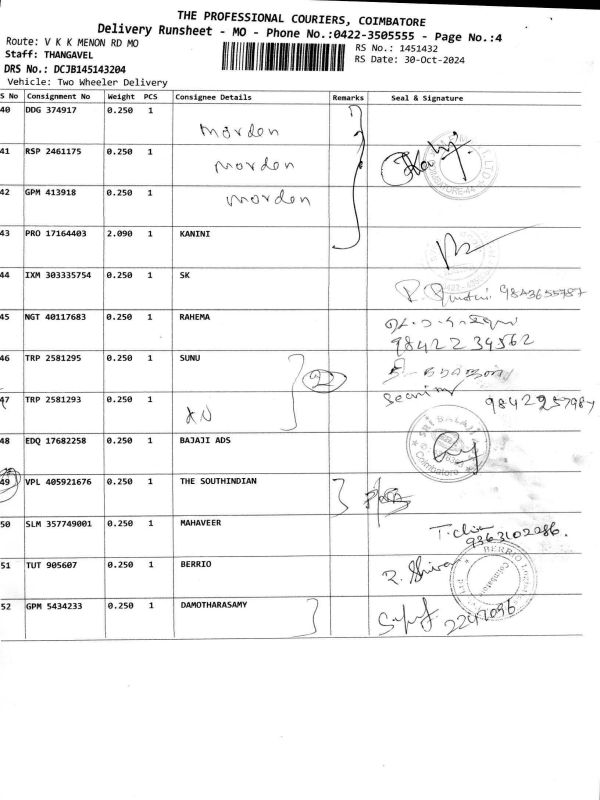 THE PROFESSIONAL COURIERS, COIMBATORE
Delivery Runsheet - MO - Phone No.:0422-3505555 - Page No.:4
Route: V K K MENON RD MO
Staff: THANGAVEL
DRS No.: DCJB145143204
Vehicle: Two Wheeler Delivery
RS No.: 1451432
RS Date: 30-Oct-2024
S No Consignment No Weight PCS Consignee Details Remarks Seal & Signature
40 DDG 374917 0.250 1 morden
41 RSP 2461175 0.250 1 morden
42 GPM 413918 0.250 1 morden
43 PRO 17164403 2.090 1 KANINI
44 IXM 303335754 0.250 1 SK 9843655787
45 NGT 40117683 0.250 1 RAHEMA
98422 34562
46 TRP 2581295 0.250 1 SUNU
47 TRP 2581293 0.250 1 KN
48 EDQ 17682258 0.250 1 BAJAJI ADS SRI BALAJI Coimbatore
49 VPL 405921676 0.250 1 THE SOUTHINDIAN
50 SLM 357749001 0.250 1 MAHAVEER
9363102086.
51 TUT 905607 0.250 1 BERRIO R. Shiva BERRIO
52 GPM 5434233 0.250 1 DAMOTHARASAMY 2247096